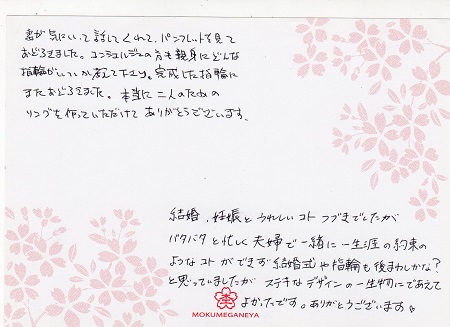 妻が気にいって話してくれて、パンフレットを見て
おどろきました。コンシェルジュの方も親身にどんな
指輪がいいか考えて下さり。完成した指輪に
またおどろきました。本当に二人のための
リングを作っていただけて ありがとうございます。
結婚、妊娠とうれしいコト つづきでしたが
バタバタと忙しく 夫婦で一緒に 一生涯の約束の
ようなコトができず 結婚式や指輪も後まわしかな?
と思っていましたが ステキなデザインの一生物にであえて
よかったです。ありがとうございます。
MOKUMEGANEYA